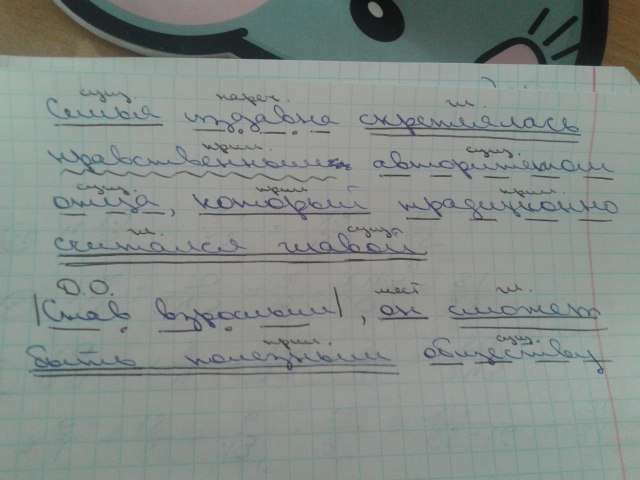 сущ. нареч. гл.
Семья издавна скреплялась
прил. сущ.
нравственным авторитетом
сущ. прил прил.
отца, который традиционно
гл. сущ.
считался главой
Д.О. мест гл.
|Став взрослым|, он сможет
прил. сущ.
быть полезным обществу